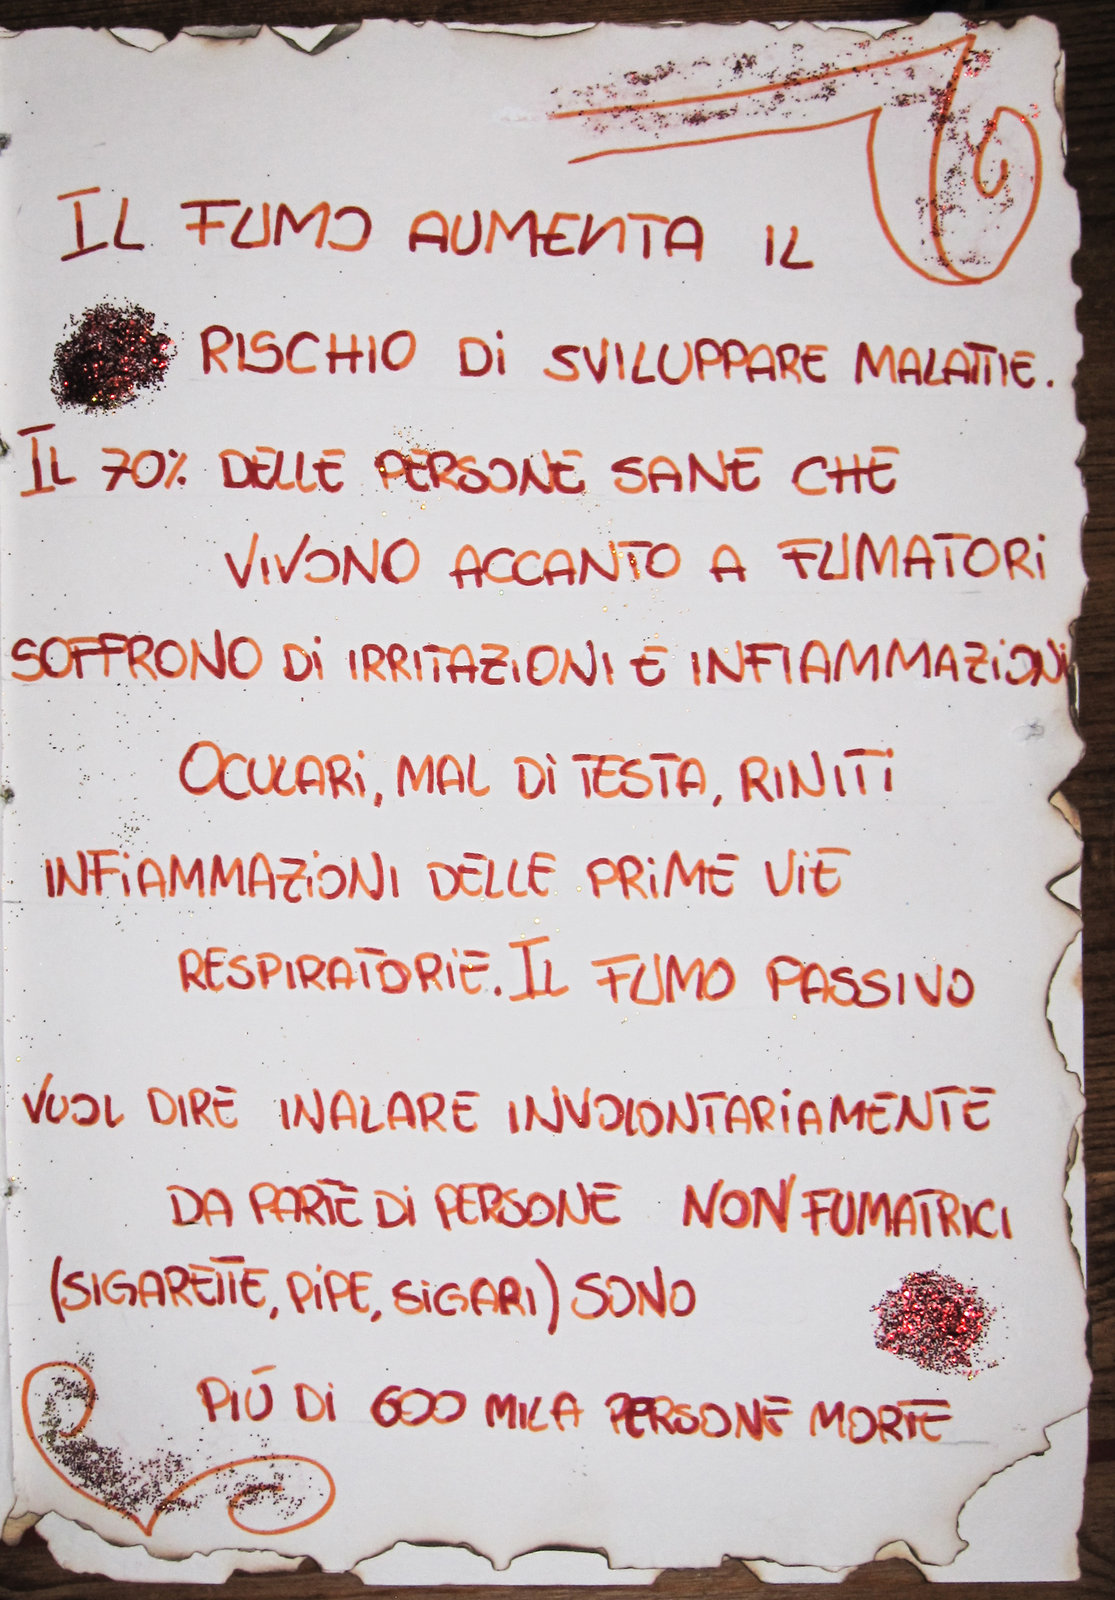 IL FUMO AUMENTA IL
RISCHIO Di SVILUPPARE MALATTIE.
IL 70% DELLE PERSONE SANE CHE
VIVONO ACCANTO A FUMATORi
SOFFRONO Di IRRITAZIONI E INFIAMMAZiONi
OCULARi, MAL Di TESTA, RINITi
INFiAMMAZiONI DELLE PRiME ViE
RESPIRATORiE. IL FUMO PASSIVO
VUOL DIRE INALARE INVOLONTARiAMENTE
DA PARTE Di PERSONE NON FUMATRICI
(SIGARETTE, PiPE, SiGARI) SONO
PIÚ Di 600 MILA PERSONE MORTE